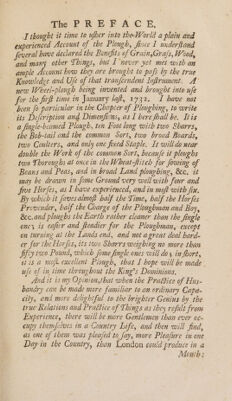 The PREFACE.
I thought it time to usher into the World a plain and
experienced Account of the Plough, since I understand
several have declared the Benefits of Grain, Grass, Wood,
and many other Things, but I never yet met with an
ample Account how they are brought to pass by the true
Knowledge and Use of that transcendent Instrument. A
new Wheel-plough being invented and brought into use
for the first time in January last, 1732. I have not
been so particular in the Chapter of Ploughing, to write
its Description and Dimensions, as I here shall be. It is
a single-beamed Plough, ten Foot long with two Sharrs,
the Bob-tail and the common Sort, two broad Boards,
two Coulters, and only one fixed Staple. It will do near
double the Work of the common Sort, because it ploughs
two Thoroughs at once in the Wheat-stitch for sowing of
Beans and Pease, and in broad Land ploughing, &c. it
may be drawn in some Ground very well with four and
five Horses, as I have experienced, and in most with six.
By which it saves almost half the Time, half the Horse
Provender, half the Charge of the Ploughman and Boy,
&c. and ploughs the Earth rather cleaner than the single
one; is easier and steadier for the Ploughman, except
in turning at the Lands end, and not a great deal hard-
er for the Horses, its two Sharrs weighing no more than
fifty two Pound, which some single ones will do; in short,
it is a most excellent Plough, that I hope will be made
use of in time throughout the King's Dominions.
And it is my Opinion, that when the Practice of Hus-
bandry can be made more familiar to an ordinary Capa-
city, and more delightful to the brighter Genius by the
true Relations and Practice of Things as they result from
Experience, there will be more Gentlemen than ever oc-
cupy themselves in a Country Life, and then will find,
as one of them was pleased to say, more Pleasure in one
Day in the Country, than London could produce in a
Month: